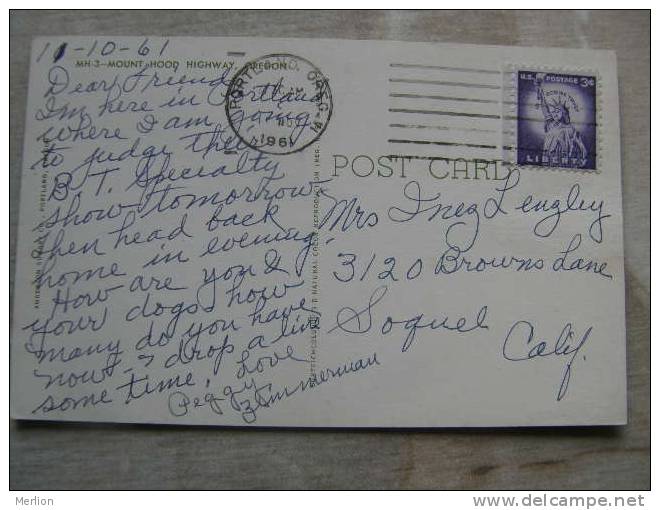 11-10-61
MH-3-MOUNT HOOD HIGHWAY, OREGON
Dear Friend,
I'm here in Portland
where I am going
to judge the
B.T. Specialty
show tomorrow-
then head back
home in evening.
How are you &
your dogs, how
many do you have
now - drop a line
some time, Love
Peggy
Zimmerman
PORTLAND, OREG
1961
U.S. POSTAGE 3¢
IN GOD WE TRUST
LIBERTY
POST CARD
Mrs Inez Lengley
3120 Browns Lane
Soquel
Calif.
NATURAL COLOR REPRODUCTION
Merlion
http://www.delcampe.net